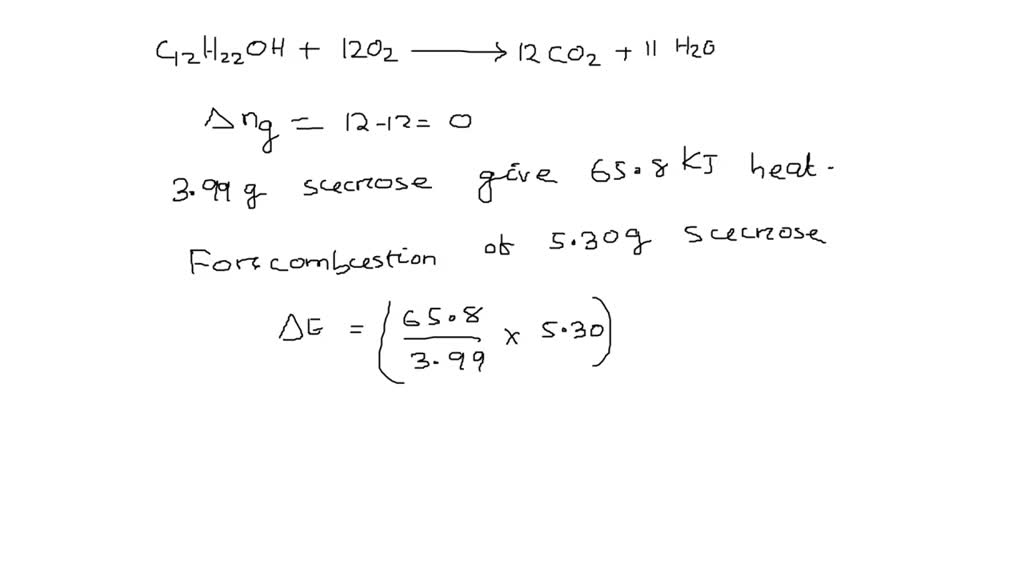 C12H22OH + 12O2 → 12 CO2 + 11 H2O
Δng = 12-12= 0
3.99 g scecrose give 65.8 KJ heat.
Forscombcestion of 5.30g scecrose
ΔE = (65.8/3.99 x 5.30)